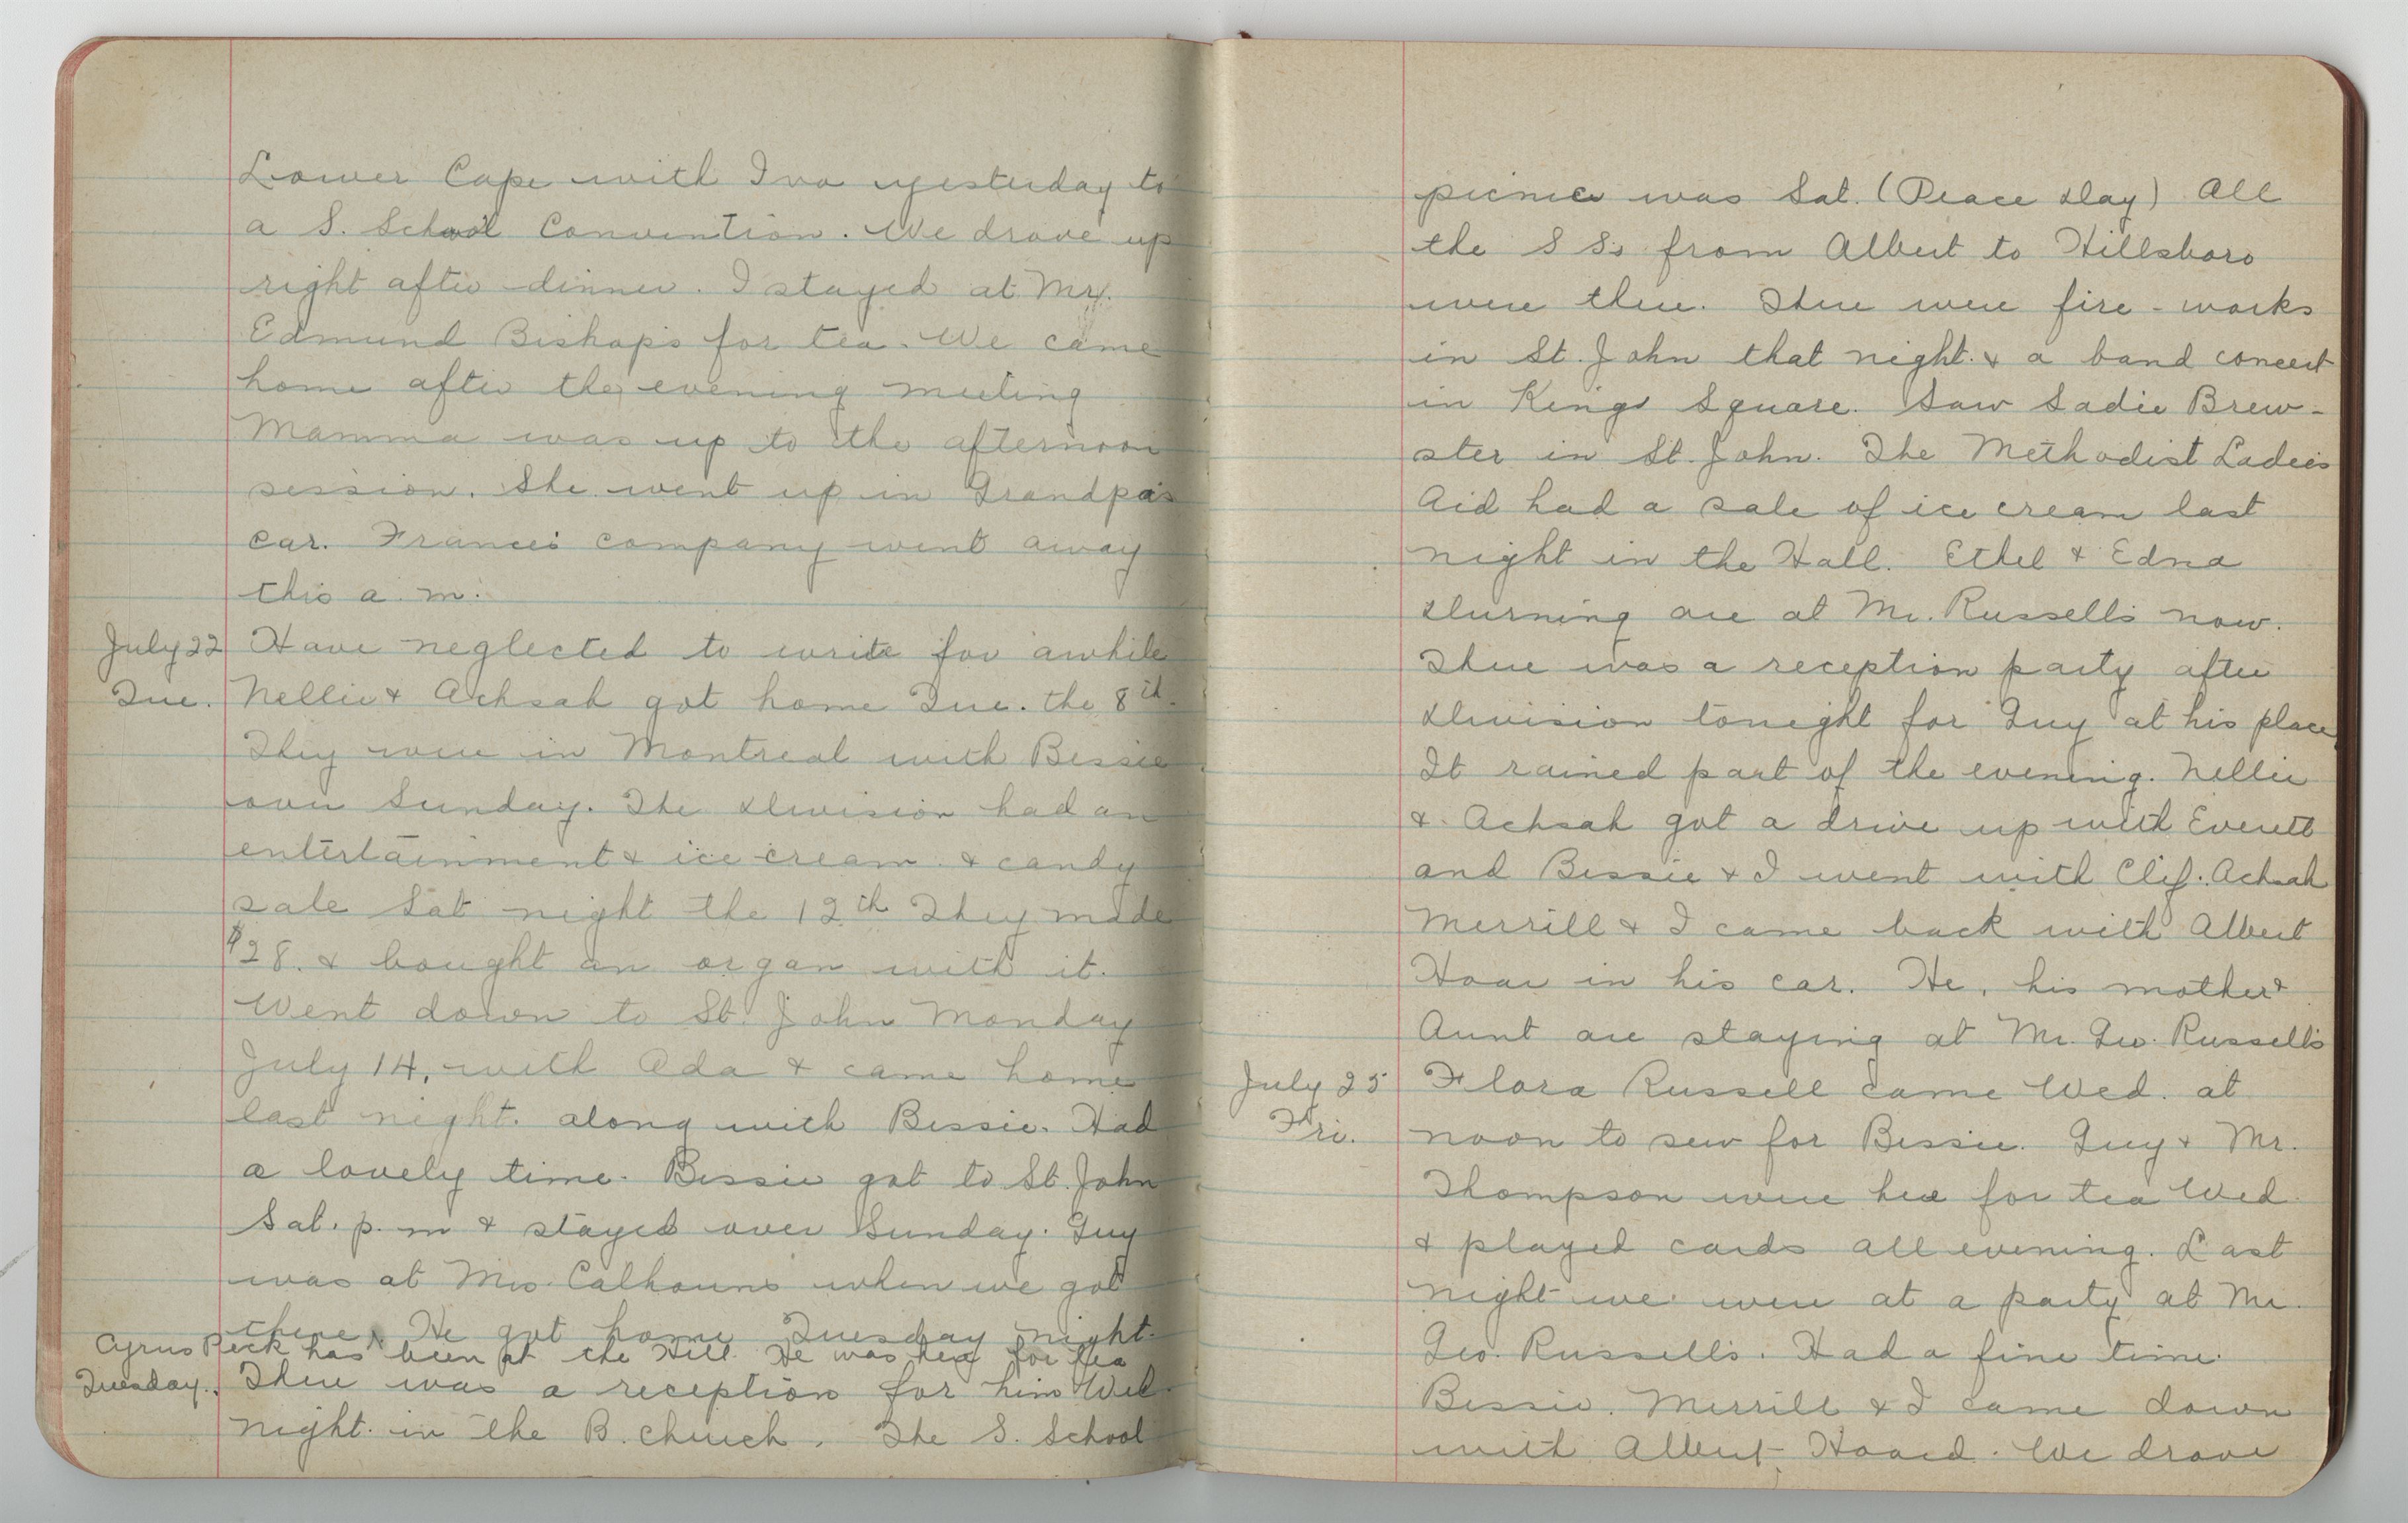 Lower Cape with Iva yesterday to
a S. School Convention. We drove up
right after dinner. I stayed at Mr.
Edmund Bishop's for tea. We came
home after the evening meeting
Mamma was up to the afternoon
session. She went up in Grandpa's
car. Frances company went away
this a.m.
July 22 Have neglected to write for awhile
Tue. Nellie & Achsah got home Tue. the 8th.
They were in Montreal with Bessie
over Sunday. The Division had an
entertainment & ice cream & candy
sale Sat night the 12th They made
$28. & bought an organ with it.
Went down to St. John Monday
July 14, with Ada & came home
last night. along with Bessie. Had
a lovely time. Bessie got to St. John
Sat. p.m & stayed over Sunday. Guy
was at Mrs. Calhouns when we got
there. He got home Tuesday night.
Cyrus Peck has been at the Hill. He was here for tea
Tuesday. There was a reception for him Wed.
night in the B. church. The S. School
picnic was Sat. (Peace Day) All
the S Ss from Albert to Hillsboro
were there. There were fire-works
in St. John that night. & a band concert
in Kings Square. Saw Sadie Brew-
ster in St. John. The Methodist Ladies
Aid had a sale of ice cream last
night in the Hall. Ethel & Edna
Durning are at Mr. Russell's now.
There was a reception party after
Division tonight for Guy at his place
It rained part of the evening. Nellie
& Achsah got a drive up with Everett
and Bessie & I went with Clif. Achsah
Merrill & I came back with Albert
Hoar in his car. He, his mother &
Aunt are staying at Mr. Geo. Russell's
July 25 Flora Russell came Wed. at
Fri. noon to sew for Bessie. Guy & Mr.
Thompson were here for tea Wed.
& played cards all evening. Last
night we were at a party at Mr.
Geo. Russell's. Had a fine time.
Bessie, Merrill & I came down
with Albert Hoard. We drove